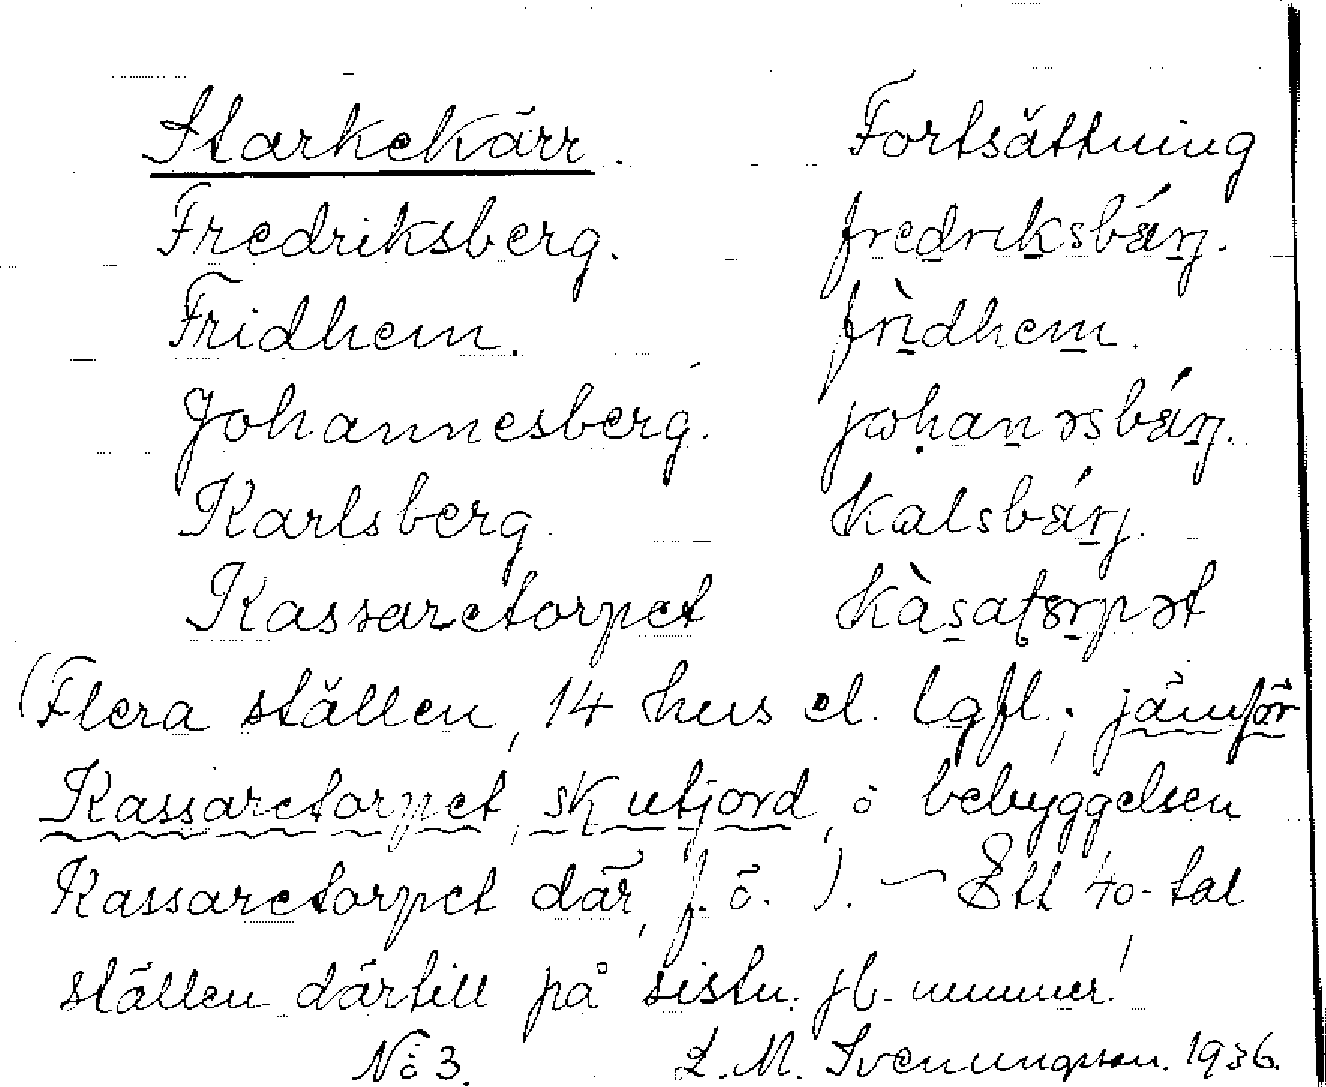 Starkekärr. Fortsättning
Fredriksberg. fredriksbárj.
Fridhem. frìdhem.
Johannesberg. johanəsbárj.
Karlsberg. kalsbárj.
Kassaretorpet kàsatorpət
(Flera ställen, 14 hus el. lgfl.; jämför
Kassaretorpet, sk utjord, o bebyggelsen
Kassaretorpet där, f. ö.). — Ett 40-tal
ställen därtill på sistn. jb-nummer!
No 3. L. M. Svenungsson. 1936.